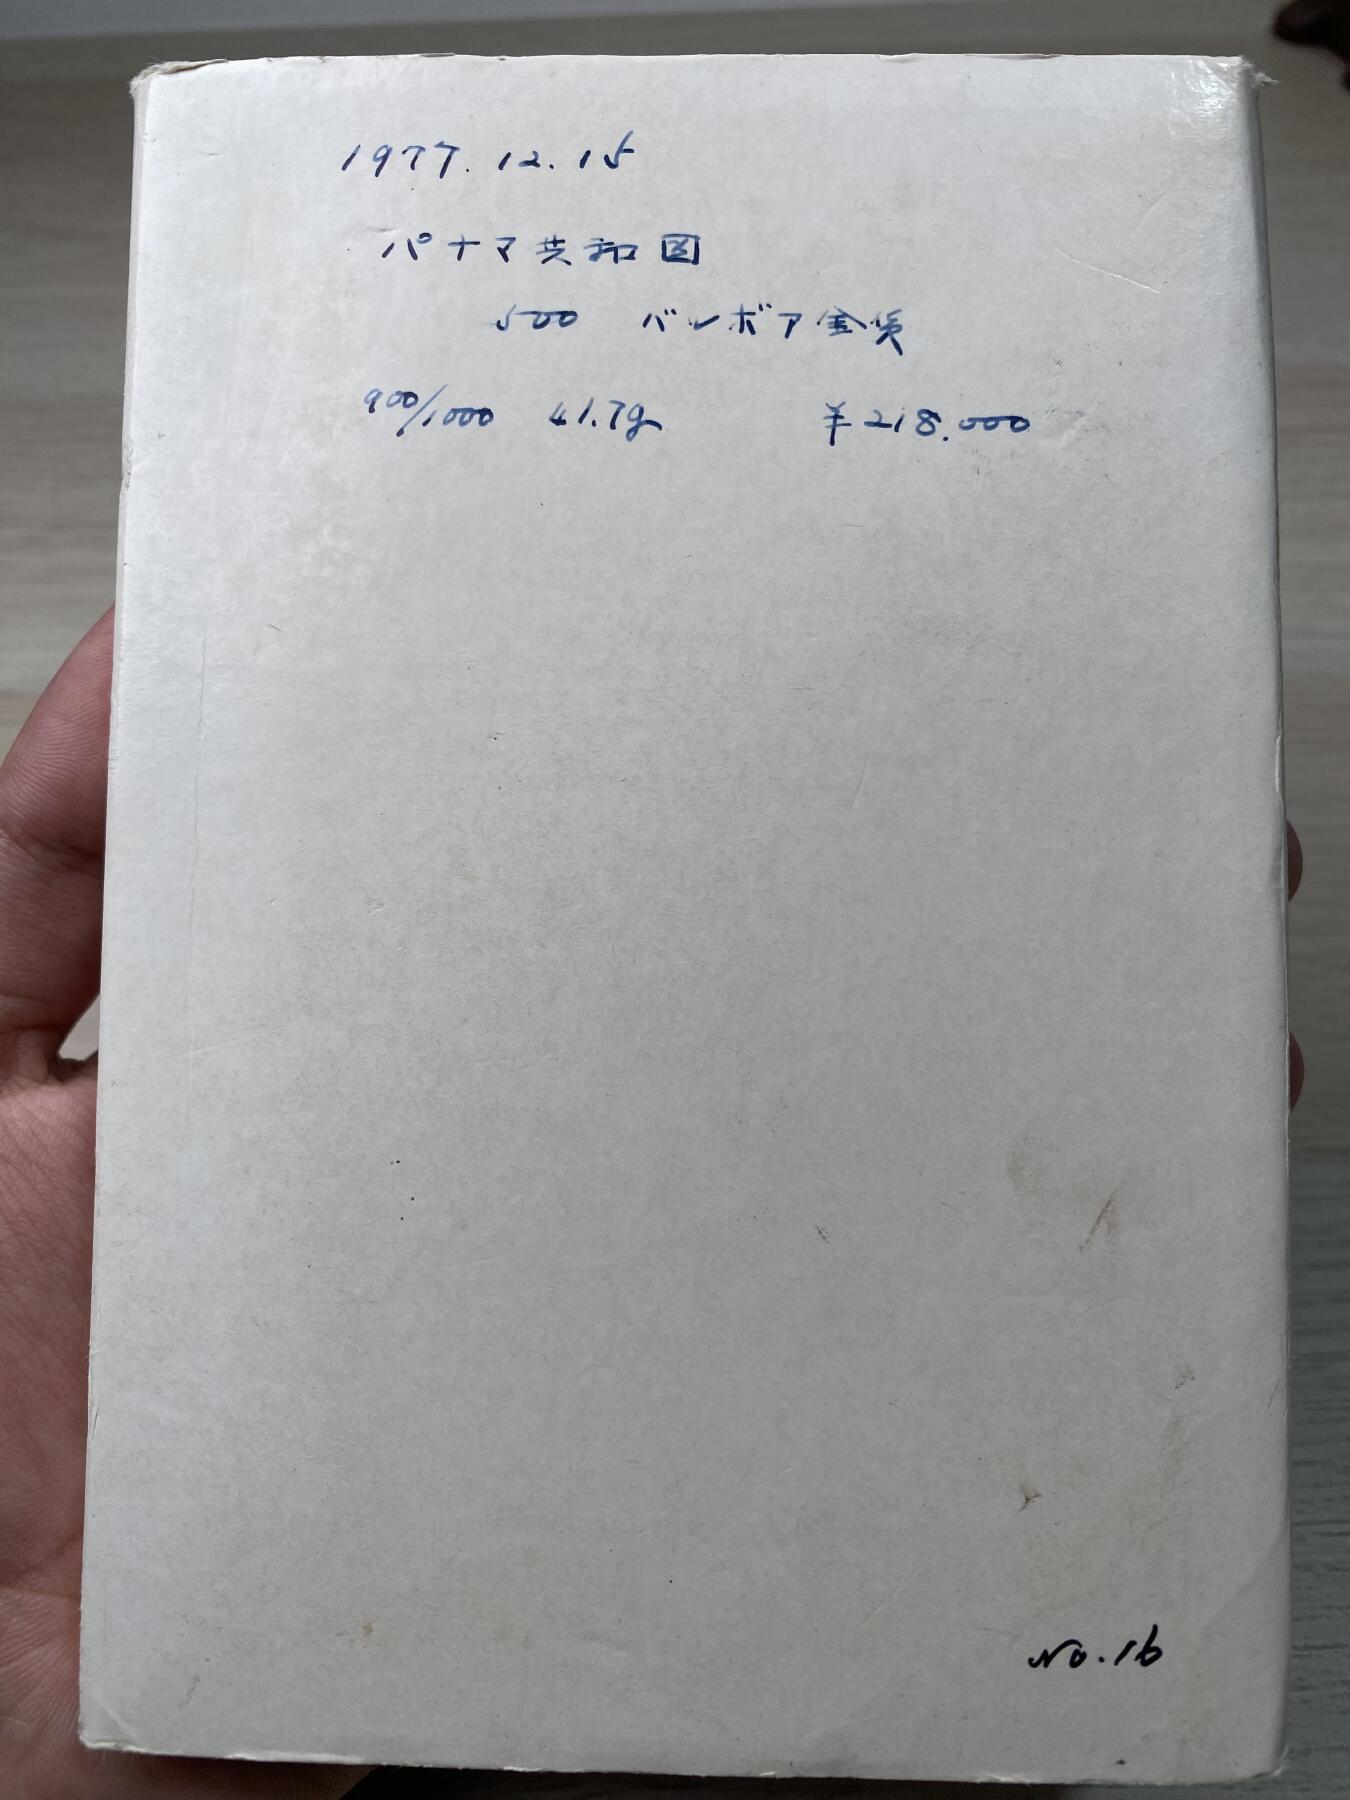 1977.12.15
パナマ共和国
500 バルボア金貨
900/1000 41.7g ¥218.000
No.16